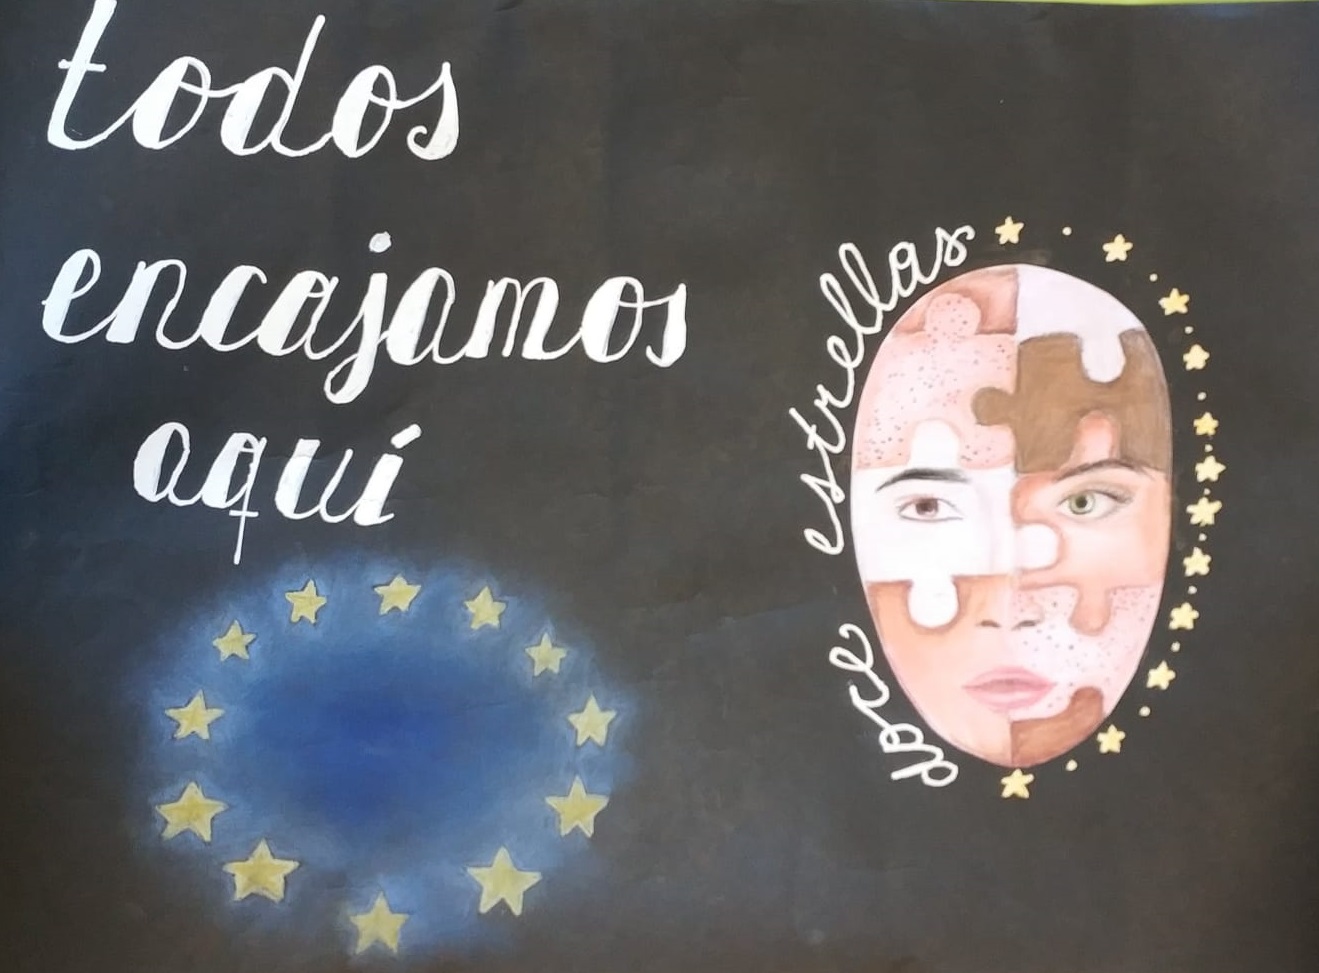 todos
encajamos
aquí
doce estrellas